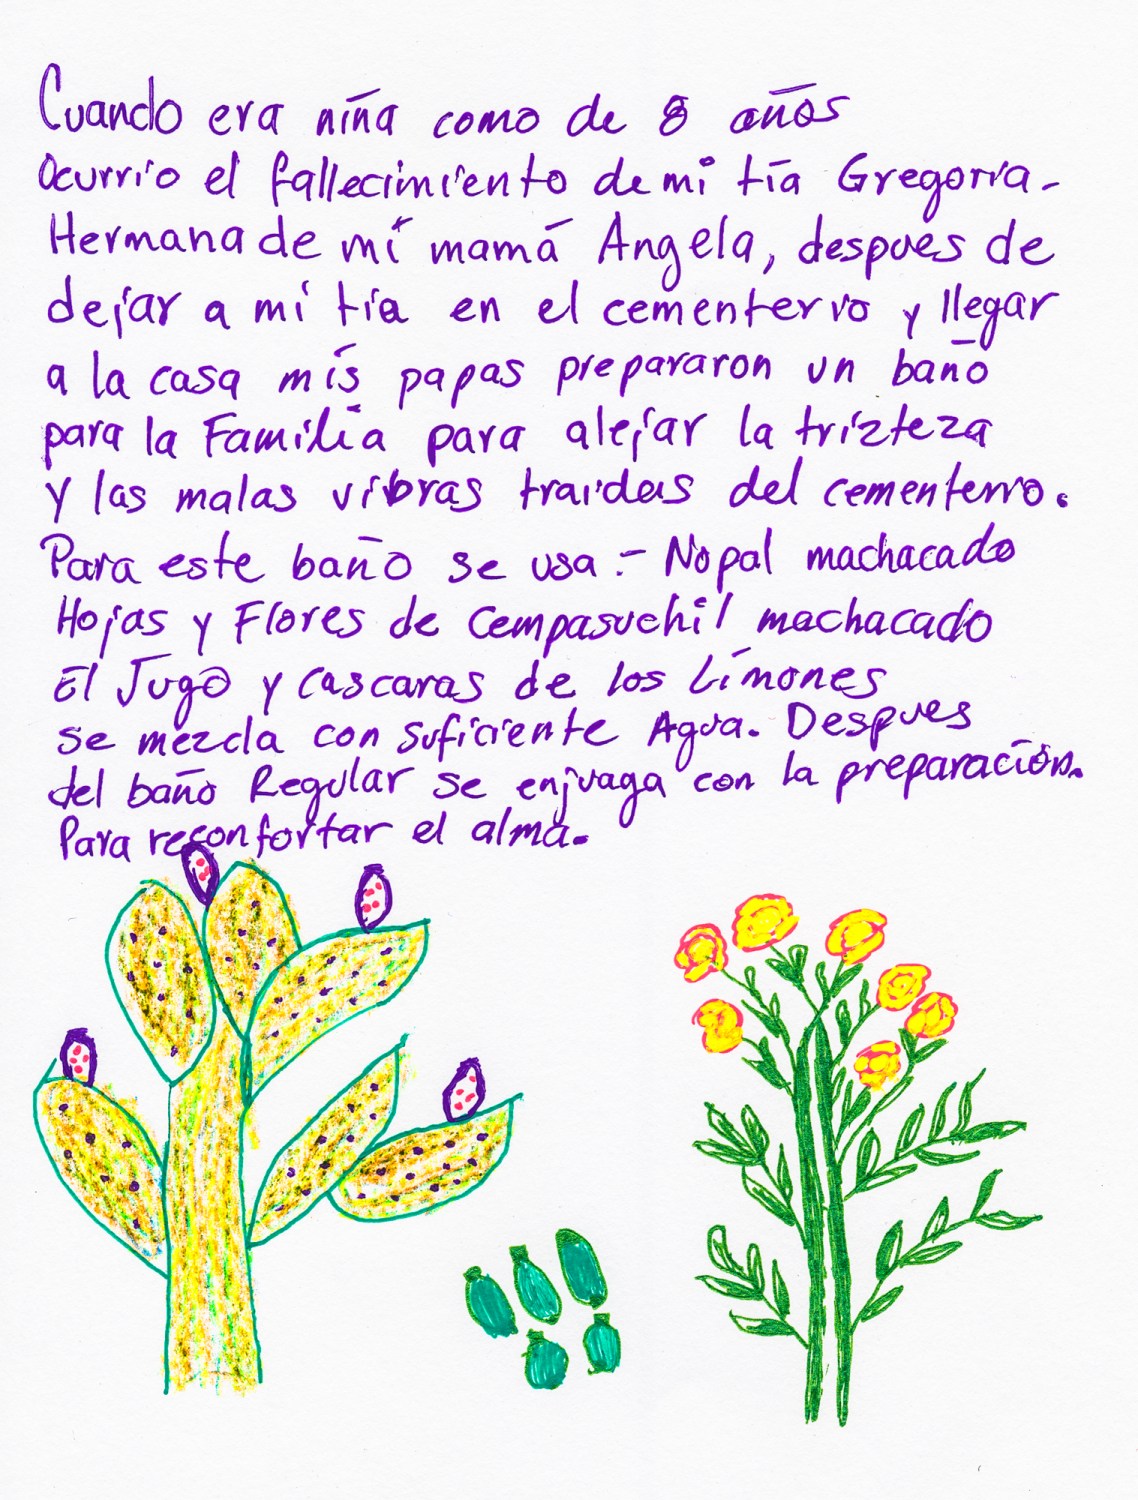 Cuando era niña como de 8 años
Ocurrio el fallecimiento de mi tía Gregoria-
Hermana de mi mamá Angela, despues de
dejar a mi tía en el cementerio y llegar
a la casa mis papas prepararon un baño
para la Familia para alejar la trizteza
y las malas vibras traidas del cementerio.
Para este baño se usa:- Nopal machacado
Hojas y Flores de Cempasuchil machacado
El Jugo y cascaras de los Limones
se mezcla con suficiente Agua. Despues
del baño Regular se enjuaga con la preparación.
Para reconfortar el alma.